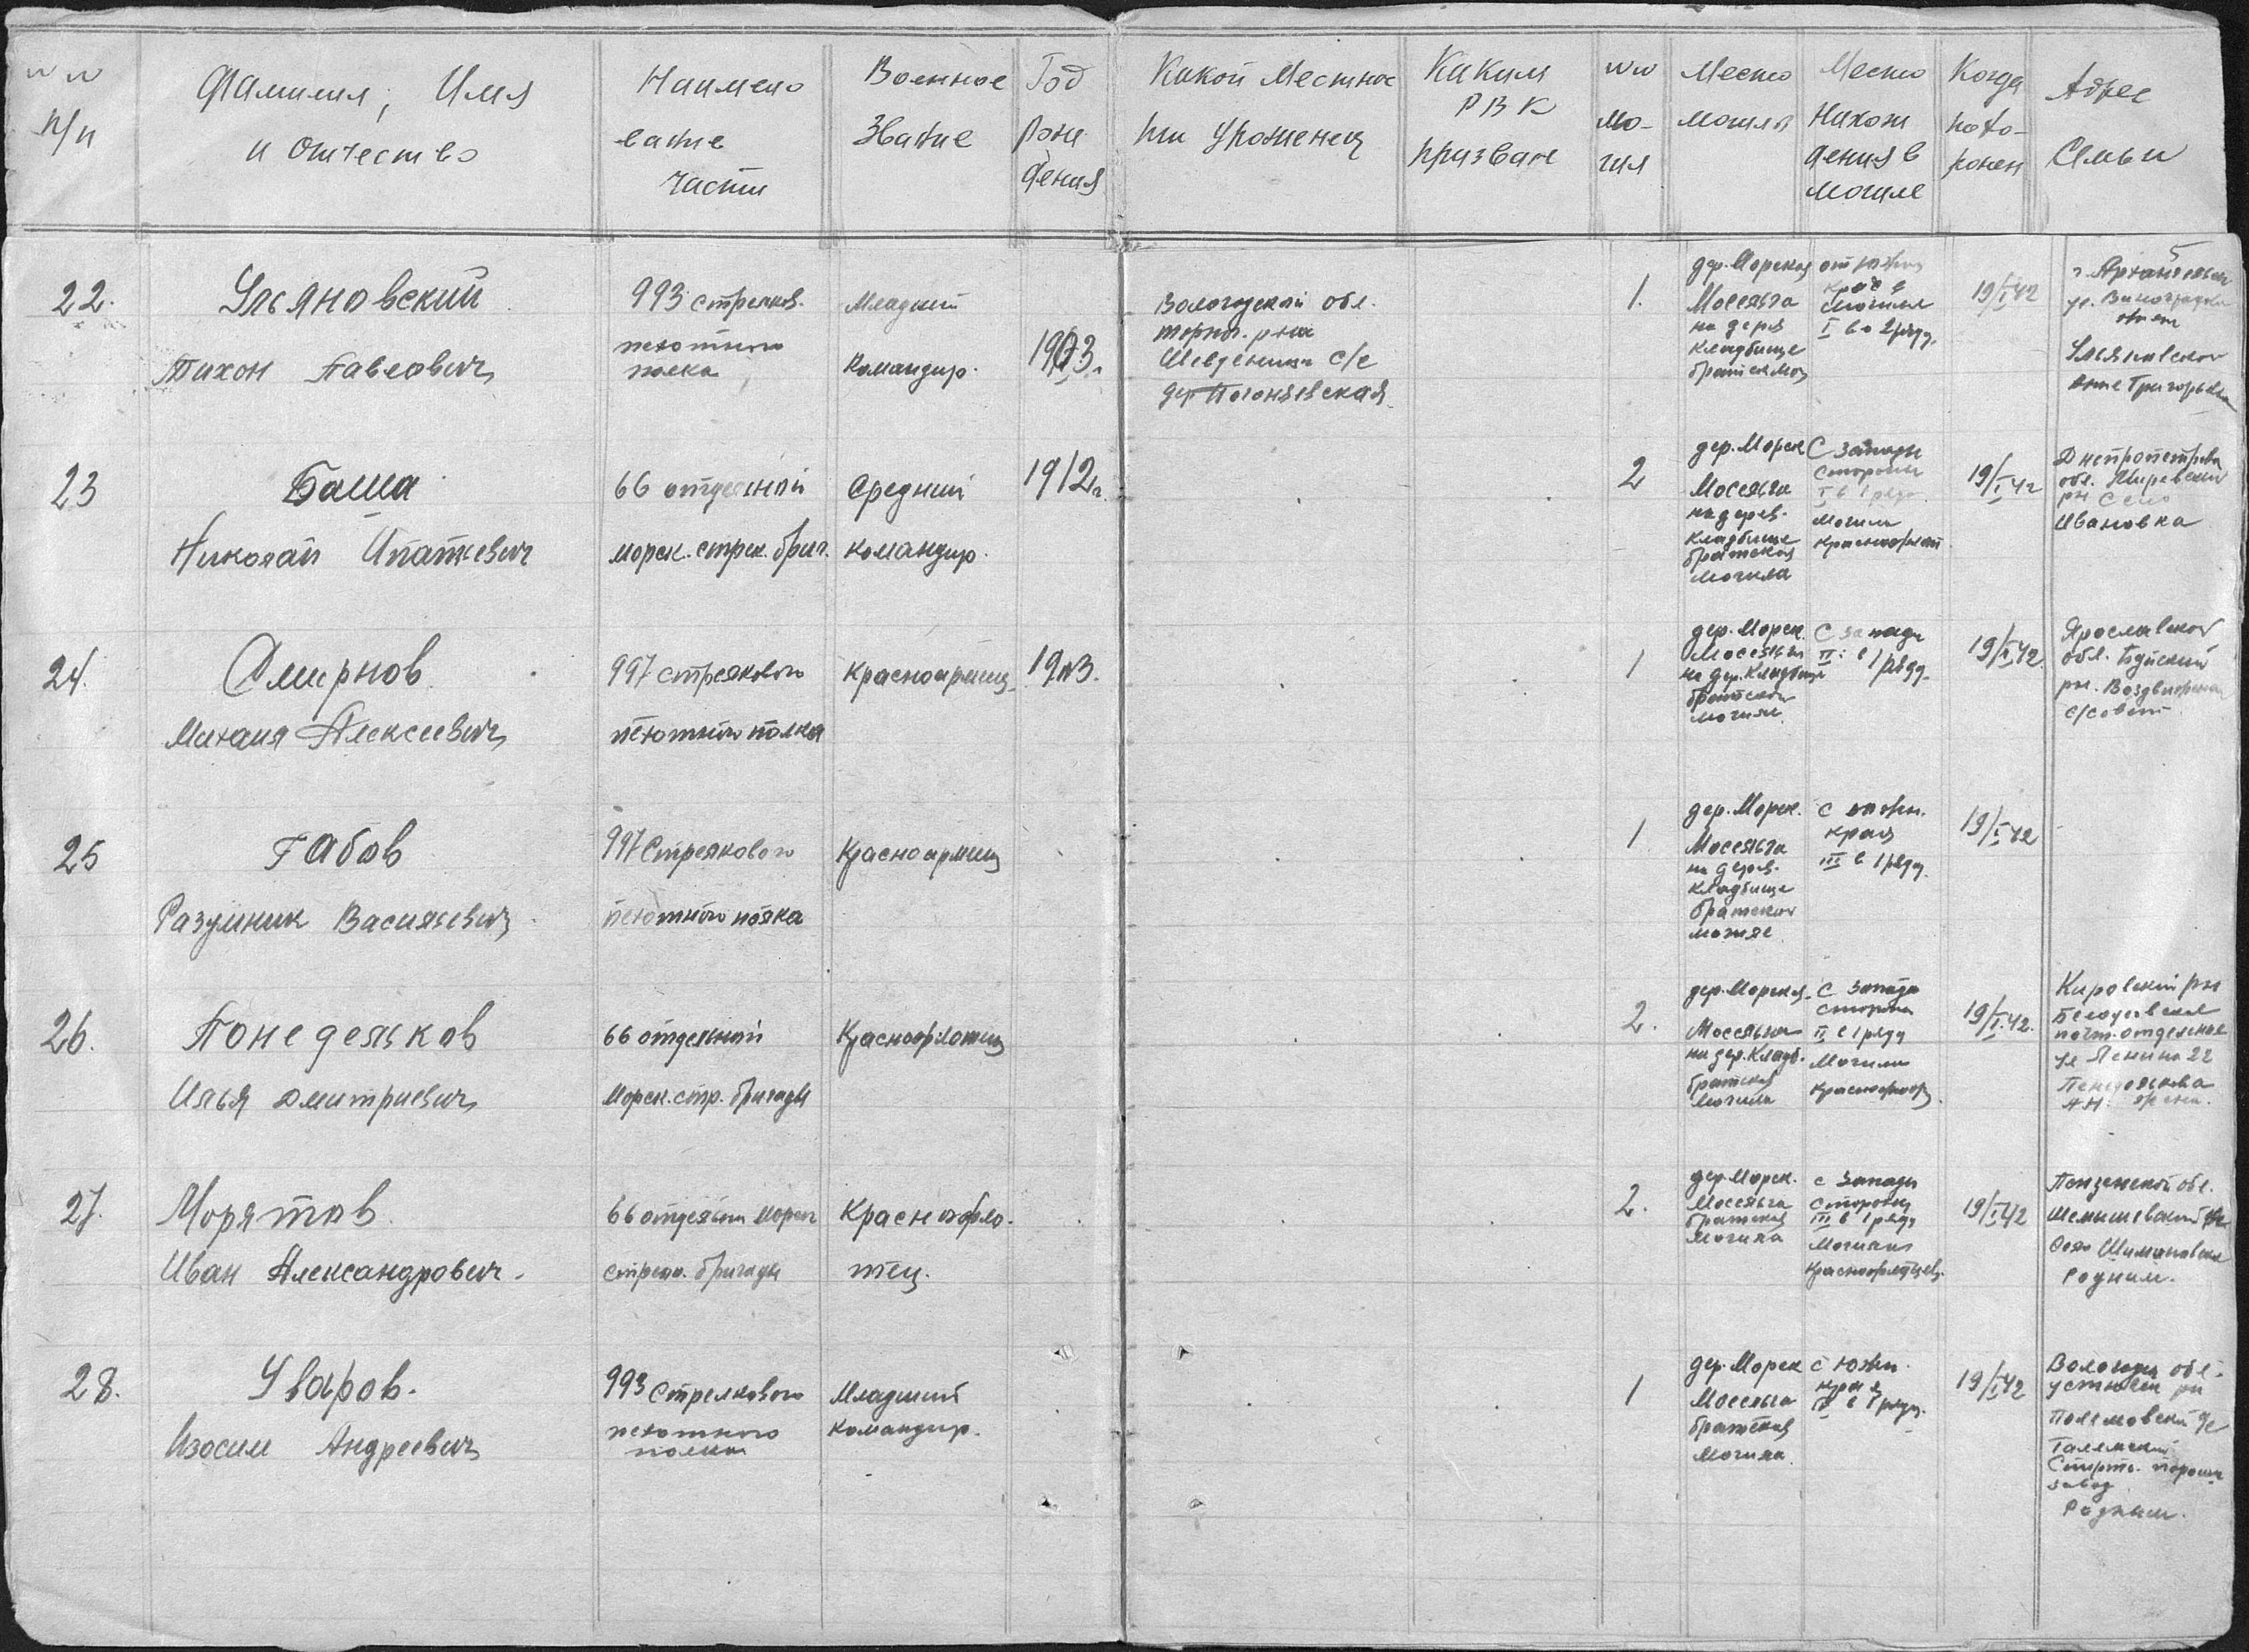 №№
п/п
Фамилия, Имя
и отчество
Наимено
вание
части
Военное
Звание
Год
рож
дения
Какой Местнос
ти Уроженец
Каким
РВК
призван
№№
мо-
гил
Место
могилы
Место
Нахож
дения в
могиле
Когда
похо-
ронен
Адрес
Семьи
22.
Ульяновский
Тихон Павлович
993 стрелков.
пехотного
полка
Младший
Командир.
1903г.
Вологодской обл.
р-на
с/с
дер
1.
дер. Морская
Моссельга
на дерев
кладбище
от южн
края
могилы
I во 2 ряду
19/I 42
г. Архангельск
ул. Виноградова
Ульяновской
Анне Григорьевн
23
Баша
Николай Ипатиевич
66 отдельной
морск. стрел. бриг.
Средний
командир.
1912г.
2
дер. Морск
Моссельга
на дерев.
кладбище
братская
могила
С запади
стороны
I в 1 ряду
могила
краснофлот
19/I 42
Днепропетров
обл.
рн село
Ивановка
24.
Смирнов
Михаил Алексеевич
997 стрелкового
пехотного полка
Красноармеец
1903.
1
дер. Морск.
Моссельга
на дер. Кладбище
братской
могиле
С запади
II в 1 ряду
19/I 42
Ярославской
обл. Буйский
рн. Воздвиженск
с/совет
25
Габов
Разумник Васильевич
997 Стрелкового
пехотного полка
Красноармеец
1
дер. Морск.
Моссельга
на дерев.
кладбище
братской
могиле
с южн.
края
III в 1 ряду.
19/I 42
26.
Понедельков
Илья Дмитриевич
66 отдельной
Морск. стр. бригады
Краснофлотец
2.
дер. Морская
Моссельга
на дер. Кладб.
братская
могила
С запада
сторона
II в 1 ряду
Могила
Краснофлотц.
19/I 42.
Кировский рн
почт. отделение
ул Ленина 22
Понеделькова
А.Н.
27.
Морятов
Иван Александрович.
66 отдельн морск
стрелк. бригады
Краснофло-
тец.
2.
дер. Морск.
Моссельга
братская
могила
с запади
стороны
III в 1 ряду
Могилы
Краснофлотцев.
19/I 42
Пензенской обл.
Шемышевский рн
Село
Родным.
28.
Уваров.
Изосим Андреевич
993 Стрелкового
пехотного
полка
Младший
Командир.
1
дер. Морск
Моссельга
братская
Могила
с южн.
края
IV в 1 ряду.
19/I 42
Вологодск обл.
рн
завод
Родным.